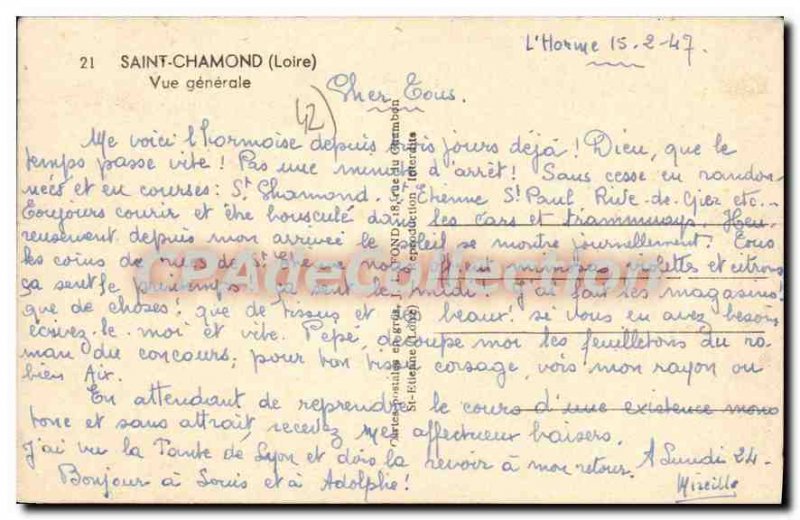 L'Horme 15-2-47.
21 SAINT-CHAMOND (Loire)
Vue générale
42
Cher Tous.
Me voici l'hormoise depuis trois jours déjà! Dieu, que le
temps passe vite! Pas une minute d'arrêt! Sans cesse en randon-
nées et en courses: St Chamond. St Etienne St Paul, Rive-de-Gier etc.-
Toujours courir et être bousculé dans les cars et trammways. Heu-
reusement depuis mon arrivée le soleil se montre journellement. Tous
les coins de rues de St on nous offrent mimosa violettes et citrons
ça sent le printemps ça sent le midi! J'ai fait les magasins!
que de choses! que de tissus et beaux! si vous en avez besoin
écrivez-le moi et vite. Pépé, découpe moi les feuilletons du ro-
man du concours, pour ton tissu corsage, vois mon rayon ou
bien Aix.
En attendant de reprendre le cours d'une existence mono
tone et sans attrait recevez mes affectueux baisers.
J'ai vu la Tante de Lyon et dois la revoir à mon retour. A Lundi 24-
Bonjour à Louis et à Adolphe!
Mireille
Cartes postales en gros, J. FOND, 18, rue du Chambon
St-Etienne (Loire) Reproduction Interdite
CPADeCollection